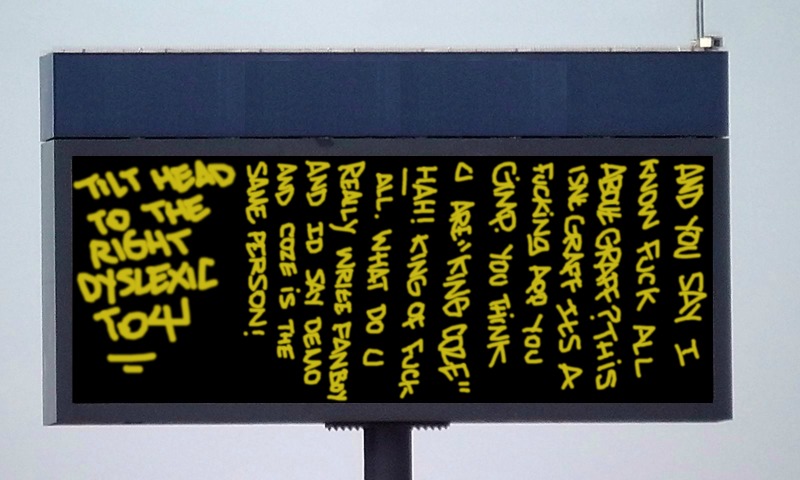 TILT HEAD
TO THE
RIGHT
DYSLEXIC
TO4
AND YOU SAY I
KNOW FUCK ALL
ABOUT GRAFF? THIS
ISNT GRAFF ITS A
FUCKING APP YOU
GIMP. YOU THINK
U ARE "KING COZE"
HAH! KING OF FUCK
ALL. WHAT DO U
REALLY WRITE FANBOY
AND ID SAY DEMO
AND COZE IS THE
SAME PERSON!